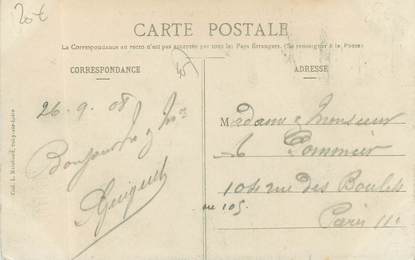 20€
CARTE POSTALE
La Correspondance au recto n'est pas acceptée par tous les Pays Étrangers. (Se renseigner à la Poste)
CORRESPONDANCE
ADRESSE
26.9.08
Bonjour
Guiguet
Madame & Monsieur
Pommier
104 rue des Boulets
ou 105
Paris 11e